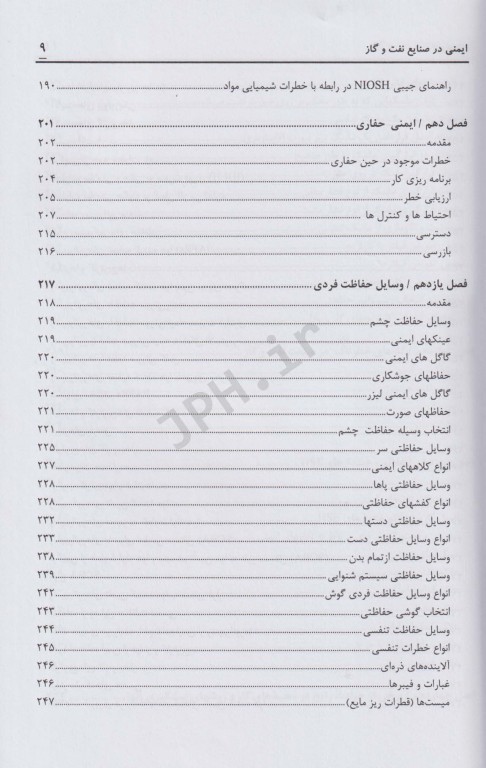 ایمنی در صنایع نفت و گاز ۹
راهنمای جیبی NIOSH در رابطه با خطرات شیمیایی مواد ۱۹۰
فصل دهم / ایمنی حفاری ۲۰۱
مقدمه ۲۰۲
خطرات موجود در حین حفاری ۲۰۲
برنامه ریزی کار ۲۰۴
ارزیابی خطر ۲۰۵
احتیاط ها و کنترل ها ۲۰۷
دسترسی ۲۱۵
بازرسی ۲۱۶
فصل یازدهم / وسایل حفاظت فردی ۲۱۷
مقدمه ۲۱۸
وسایل حفاظت چشم ۲۱۹
عینکهای ایمنی ۲۱۹
گاگل های ایمنی ۲۲۰
حفاظهای جوشکاری ۲۲۰
گاگل های ایمنی لیزر ۲۲۰
حفاظهای صورت ۲۲۱
انتخاب وسیله حفاظت چشم ۲۲۱
وسایل حفاظتی سر ۲۲۵
انواع کلاههای ایمنی ۲۲۷
وسایل حفاظتی پاها ۲۲۸
انواع کفشهای حفاظتی ۲۲۸
وسایل حفاظتی دستها ۲۳۲
انواع وسایل حفاظتی دست ۲۳۳
وسایل حفاظت ازتمام بدن ۲۳۸
وسایل حفاظتی سیستم شنوایی ۲۳۹
انواع وسایل حفاظت فردی گوش ۲۴۲
انتخاب گوشی حفاظتی ۲۴۳
وسایل حفاظت تنفسی ۲۴۴
انواع خطرات تنفسی ۲۴۵
آلاینده‌های ذره‌ای ۲۴۶
غبارات و فیبرها ۲۴۶
میست‌ها (قطرات ریز مایع) ۲۴۷
JPH.ir